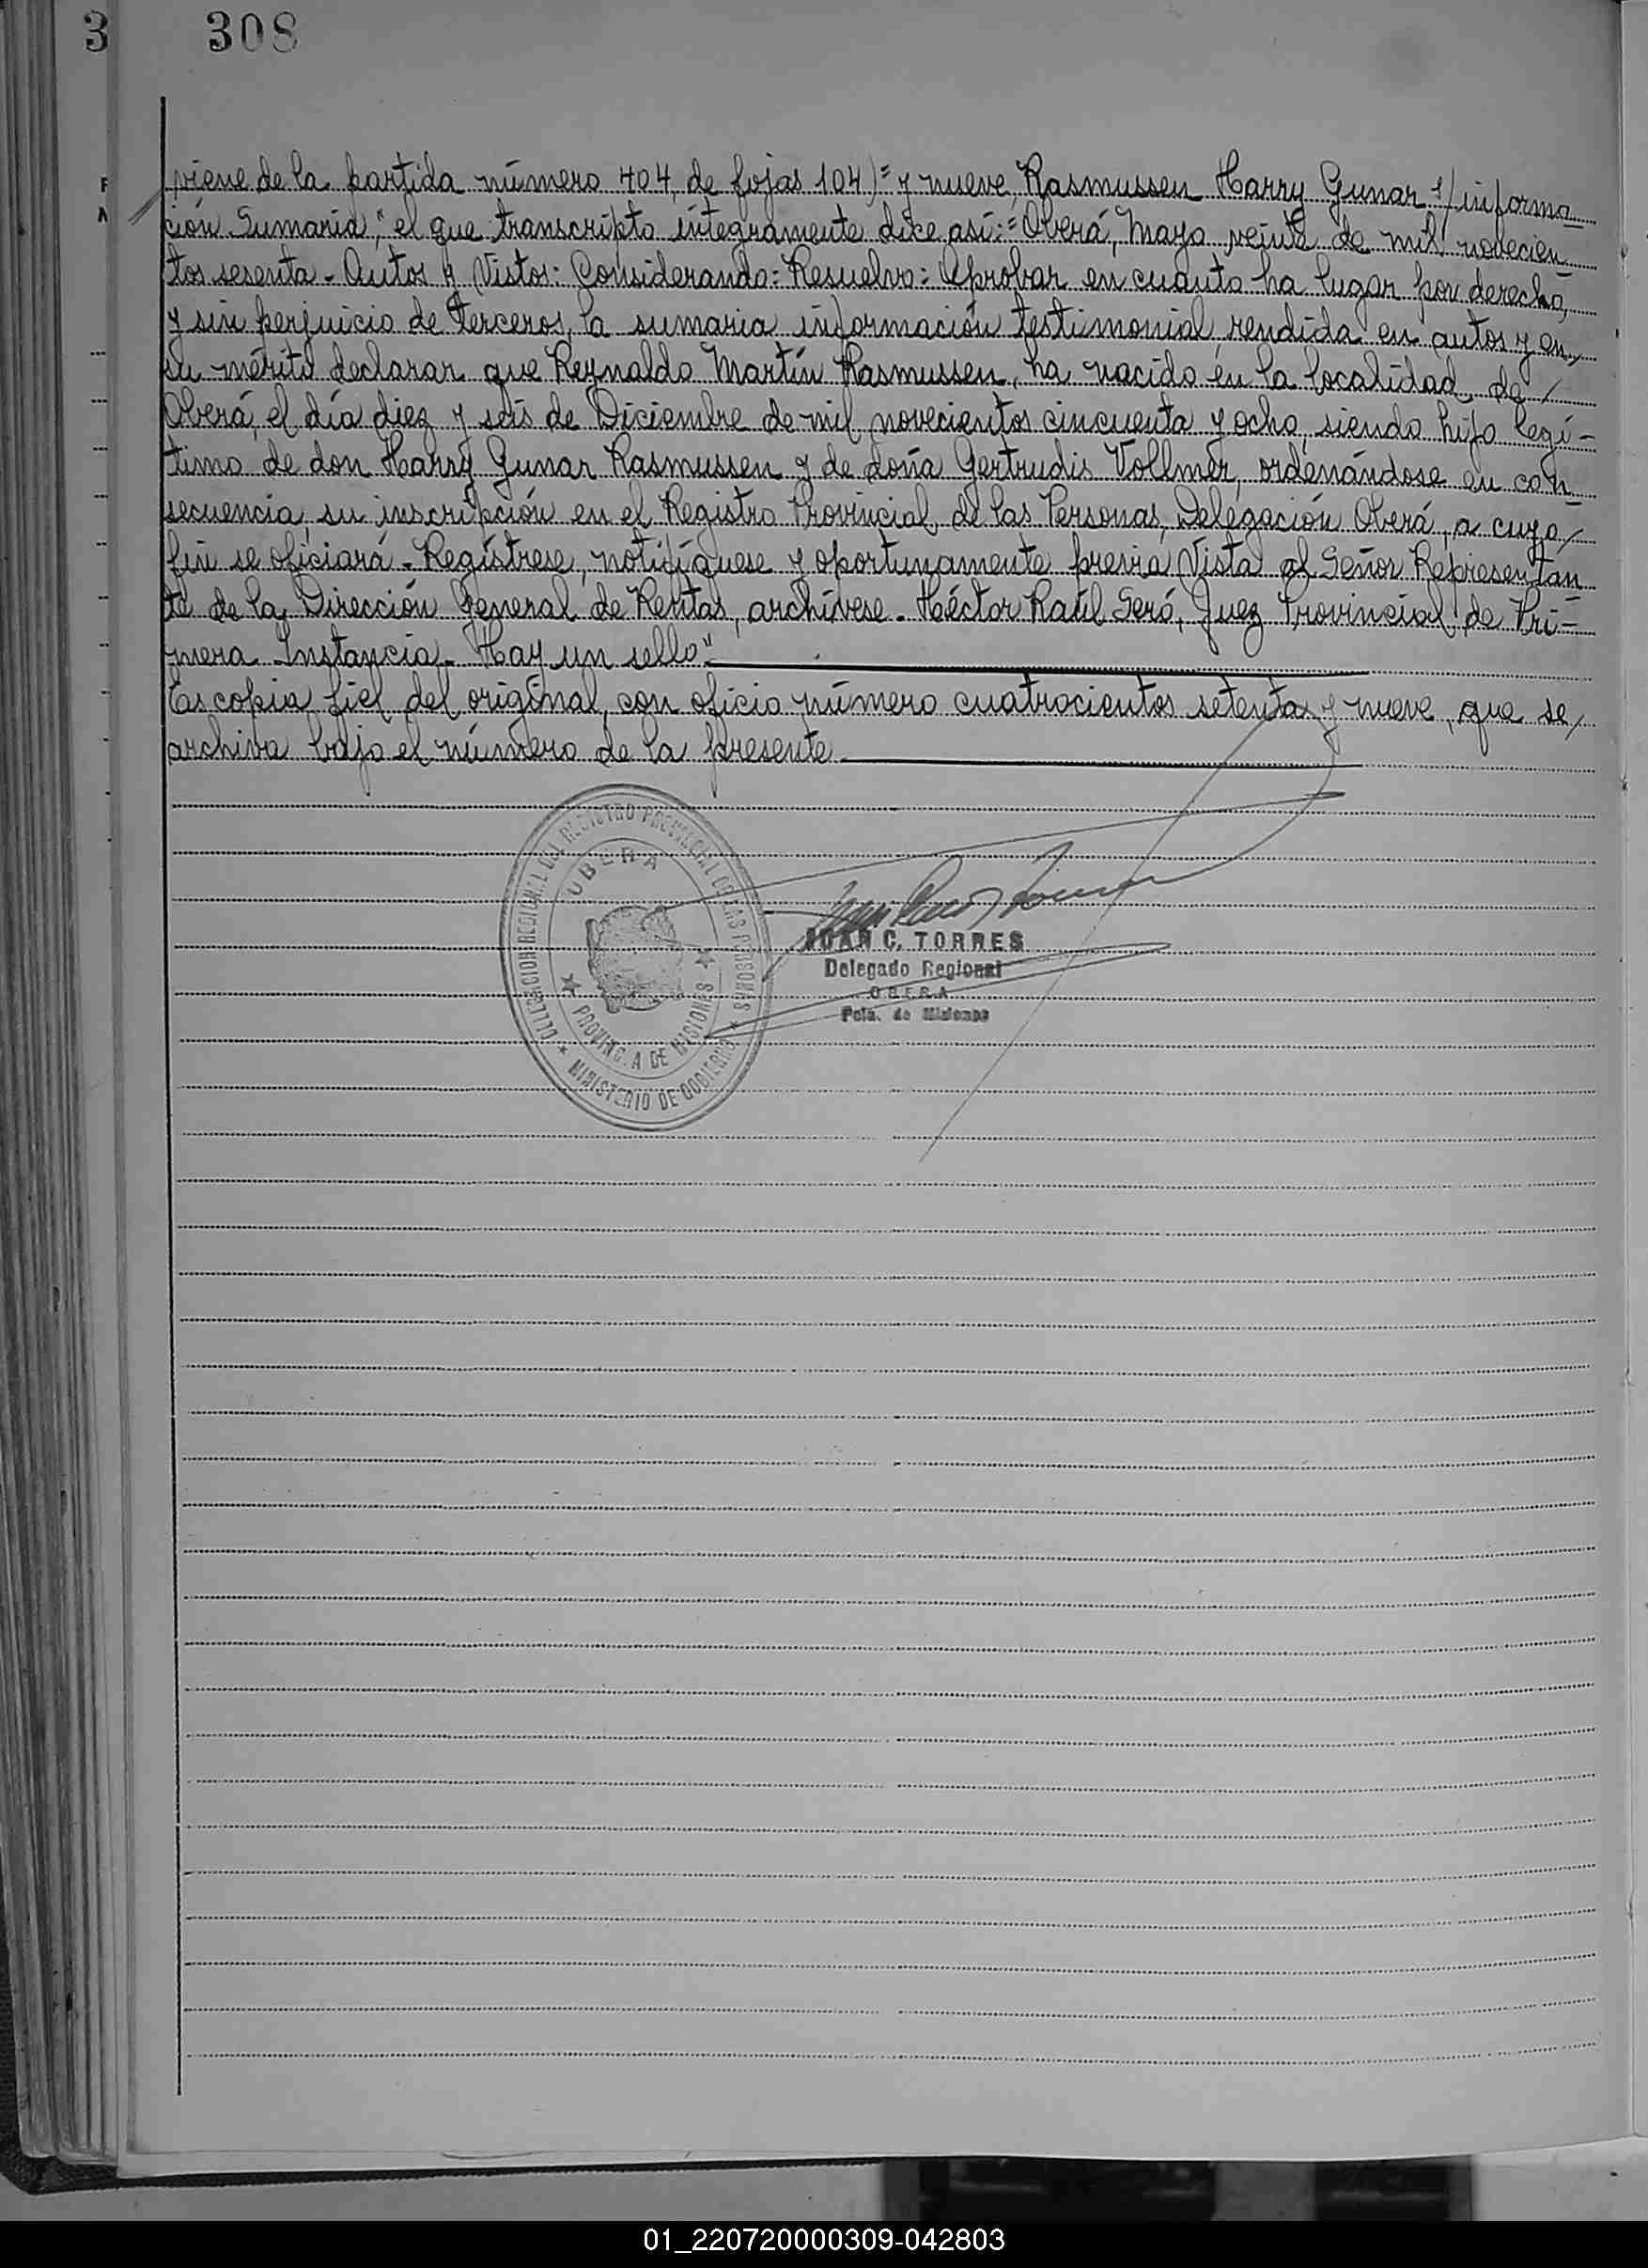 308
viene de la partida número 404, de fojas 104)= y nueve, Rasmussen Harry Gunar s/informa
ción Sumaria," el que transcripto íntegramente dice así:= Oberá, Mayo veinte de mil novecien
tos sesenta.- Autos y Vistos: Considerando: Resuelvo: Aprobar en cuanto ha lugar por derecho,
y sin perjuicio de Terceros, la sumaria información testimonial rendida en autos y en/
su mérito declarar que Reynaldo Martín Rasmussen, ha nacido en la localidad de /
Oberá, el día diez y seis de Diciembre de mil novecientos cincuenta y ocho, siendo hijo legí-
timo de don Harry Gunar Rasmussen y de doña Gertrudis Vollmer, ordenándose en con
secuencia, su inscripción en el Registro Provincial de las Personas, Delegación Oberá, a cuyo/
fin se oficiará.- Regístrese, notifíquese y oportunamente previa Vista al Señor Representan
te de la Dirección General de Rentas, archívese.- Héctor Raúl Seró, Juez Provincial de Pri-
mera Instancia.- Hay un sello".-
Es copia fiel del original, con oficio número cuatrocientos setenta y nueve, que se/
archiva bajo el número de la presente.-
DELEGACION REGIONAL DEL REGISTRO PROVINCIAL DE LAS PERSONAS
OBERA
PROVINCIA DE MISIONES
MINISTERIO DE GOBIERNO
JUAN C. TORRES
Delegado Regional
OBERA
Pcia. de Misiones
01_220720000309-042803